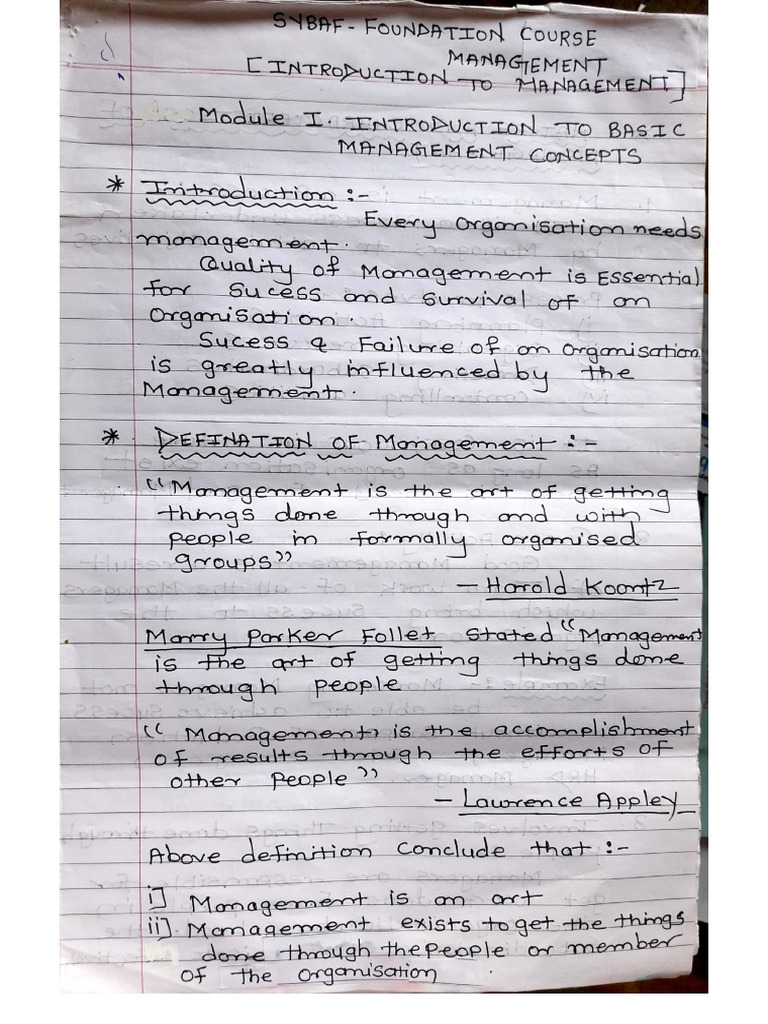 SYBAF-FOUNDATION COURSE
MANAGEMENT
[INTRODUCTION TO MANAGEMENT]
Module I. INTRODUCTION TO BASIC
MANAGEMENT CONCEPTS
* Introduction :-
Every organisation needs
management.
Quality of Management is Essential
for sucess and survival of an
organisation.
Sucess & Failure of an organisation
is greatly influenced by the
Management.
* DEFINATION OF Management :-
"Management is the art of getting
things done through and with
people in formally organised
groups"
- Harold Koontz
Marry Parker Follet stated "Management
is the art of getting things done
through people
"Management, is the accomplishment
of results through the efforts of
other people"
- Lawrence Appley
Above definition conclude that :-
i] Management is an art
ii] Management exists to get the things
done through the people or member
of the organisation.